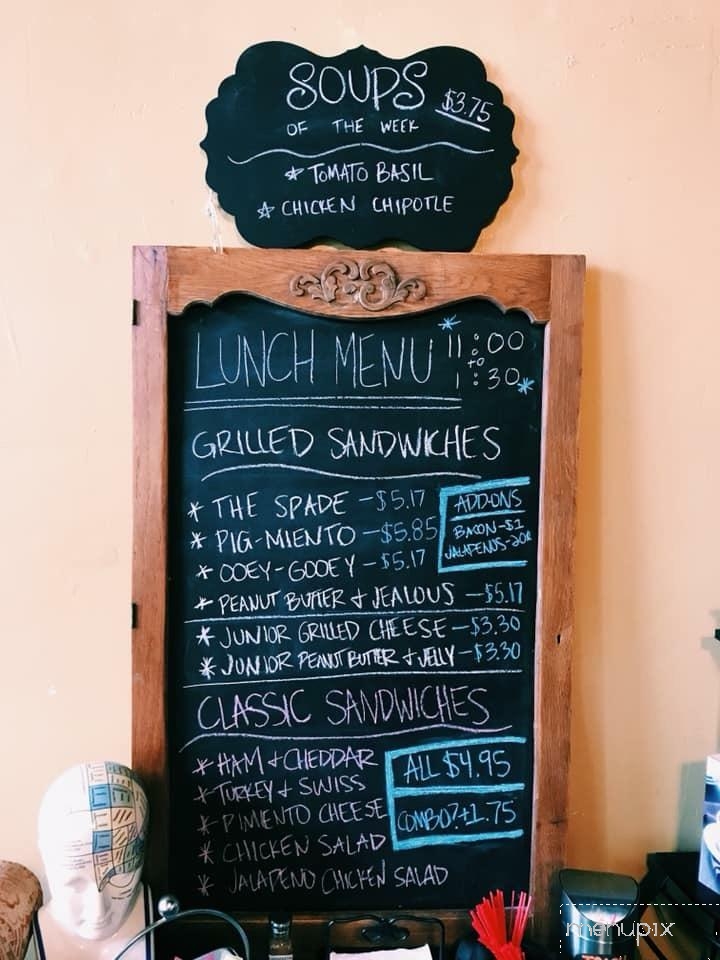 SOUPS $3.75
OF THE WEEK
* TOMATO BASIL
* CHICKEN CHIPOTLE
LUNCH MENU * 11:00
to
1:30 *
GRILLED SANDWICHES
* THE SPADE - $5.17
* PIG-MIENTO - $5.85
* OOEY-GOOEY - $5.17
* PEANUT BUTTER + JEALOUS - $5.17
ADD-ONS
BACON - $1
JALAPENOS - 20¢
* JUNIOR GRILLED CHEESE - $3.30
* JUNIOR PEANUT BUTTER + JELLY - $3.30
CLASSIC SANDWICHES
* HAM + CHEDDAR
* TURKEY + SWISS
* PIMIENTO CHEESE
* CHICKEN SALAD
* JALAPENO CHICKEN SALAD
ALL $4.95
COMBO? +1.75
menupix